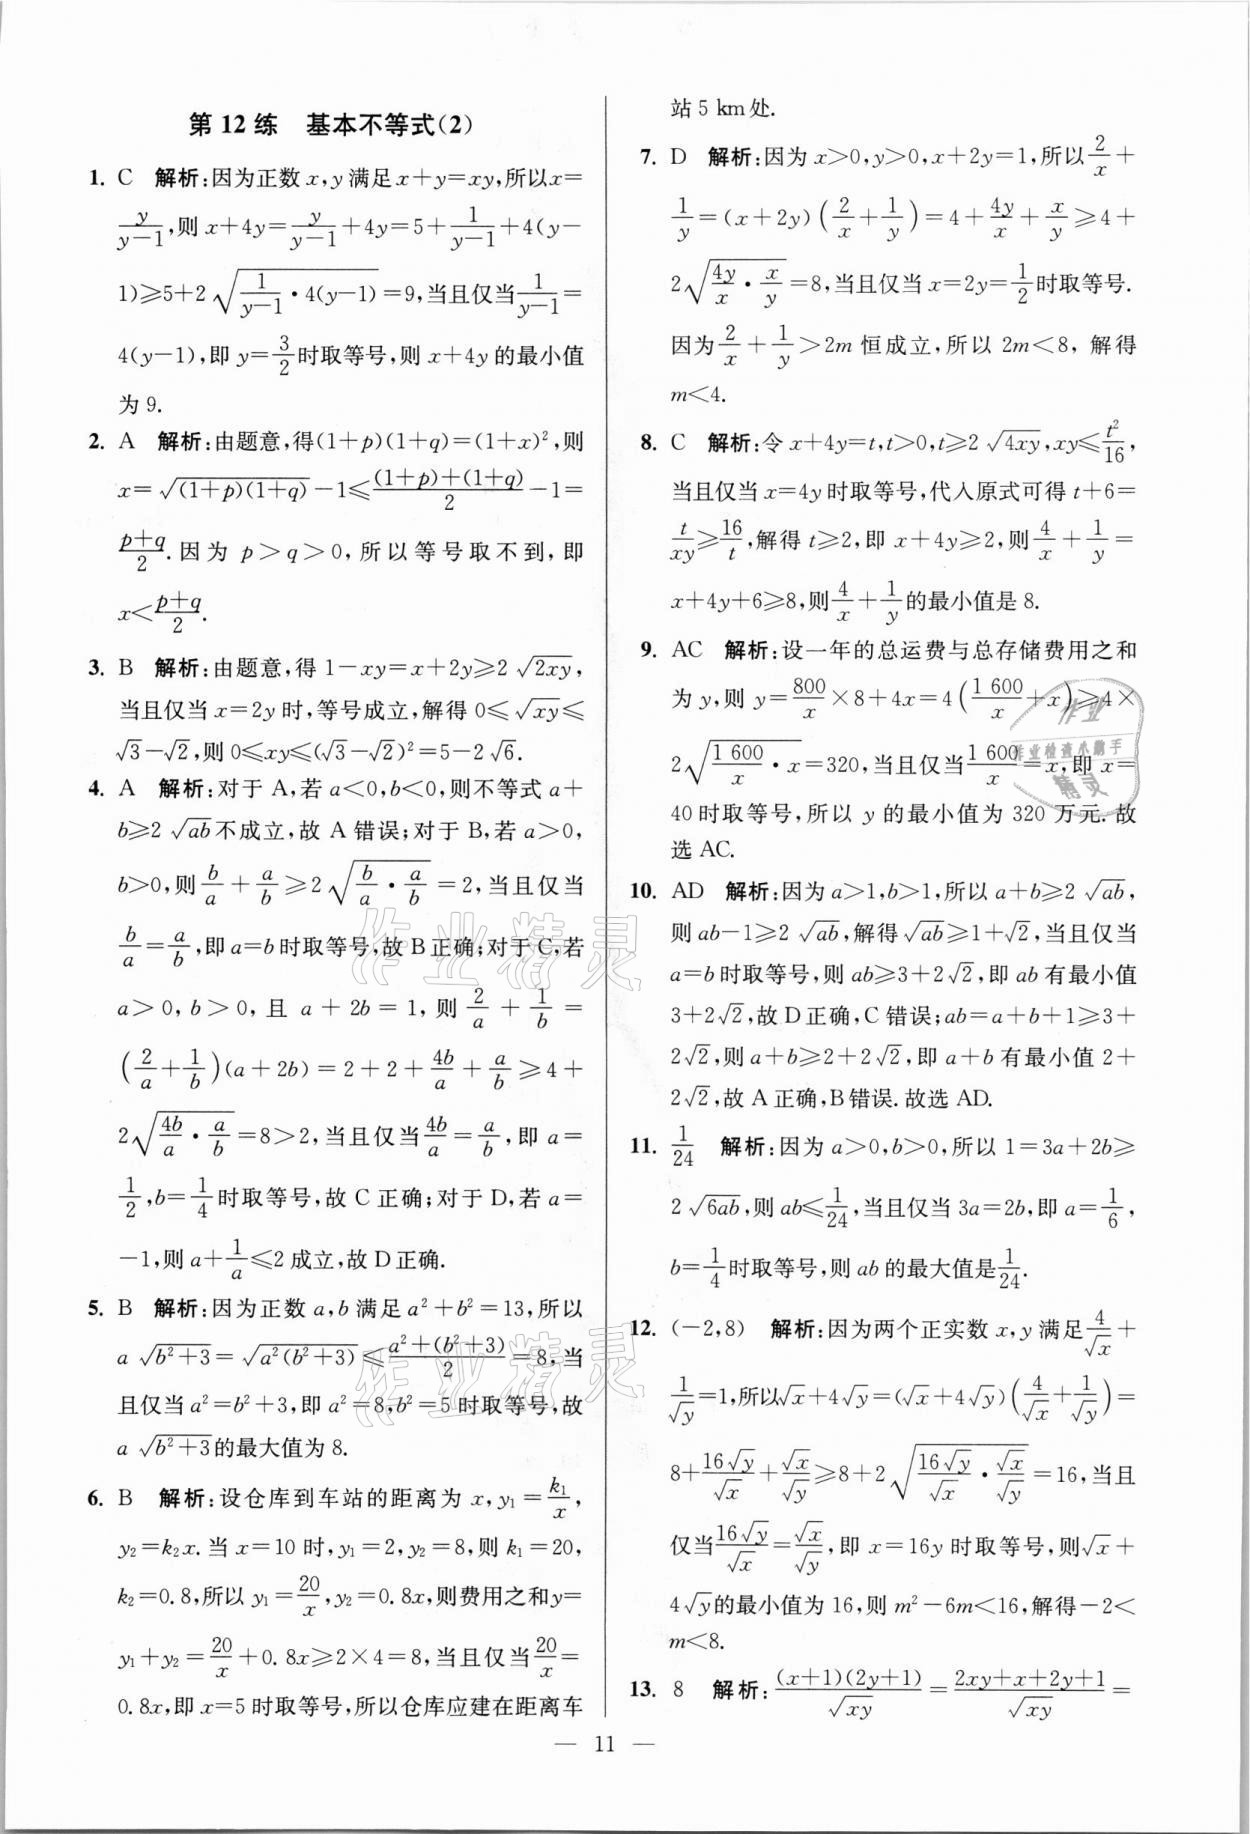 第12练　基本不等式(2)
1. C　解析:因为正数 x,y 满足 x+y=xy,所以x=
y/(y−1),则 x+4y=y/(y−1)+4y=5+1/(y−1)+4(y−
1)≥5+2√(1/(y−1)·4(y−1))=9,当且仅当1/(y−1)=
4(y−1),即 y=3/2时取等号,则 x+4y 的最小值
为 9.
2. A　解析:由题意,得(1+p)(1+q)=(1+x)²,则
x=√((1+p)(1+q))−1≤((1+p)+(1+q))/2−1=
(p+q)/2.因为 p>q>0,所以等号取不到,即
x<(p+q)/2.
3. B　解析:由题意,得 1−xy=x+2y≥2√(2xy),
当且仅当 x=2y 时,等号成立,解得 0≤√(xy)≤
√3−√2,则 0≤xy≤(√3−√2)²=5−2√6.
4. A　解析:对于 A,若 a<0,b<0,则不等式 a+
b≥2√(ab)不成立,故 A 错误;对于 B,若 a>0,
b>0,则b/a+a/b≥2√(b/a·a/b)=2,当且仅当
b/a=a/b,即 a=b 时取等号,故 B 正确;对于 C,若
a>0,b>0,且 a+2b=1,则2/a+1/b=
(2/a+1/b)(a+2b)=2+2+4b/a+a/b≥4+
2√(4b/a·a/b)=8>2,当且仅当4b/a=a/b,即 a=
1/2,b=1/4时取等号,故 C 正确;对于 D,若 a=
−1,则 a+1/a≤2 成立,故 D 正确.
5. B　解析:因为正数 a,b 满足 a²+b²=13,所以
a√(b²+3)=√(a²(b²+3))≤(a²+(b²+3))/2=8,当
且仅当 a²=b²+3,即 a²=8,b²=5 时取等号,故
a√(b²+3)的最大值为 8.
6. B　解析:设仓库到车站的距离为 x,y₁=k₁/x,
y₂=k₂x.当 x=10 时,y₁=2,y₂=8,则 k₁=20,
k₂=0.8,所以 y₁=20/x,y₂=0.8x,则费用之和y=
y₁+y₂=20/x+0.8x≥2×4=8,当且仅当20/x=
0.8x,即 x=5 时取等号,所以仓库应建在距离车
站 5 km 处.
7. D　解析:因为 x>0,y>0,x+2y=1,所以2/x+
1/y=(x+2y)(2/x+1/y)=4+4y/x+x/y≥4+
2√(4y/x·x/y)=8,当且仅当 x=2y=1/2时取等号.
因为2/x+1/y>2m 恒成立,所以 2m<8,解得
m<4.
8. C　解析:令 x+4y=t,t>0,t≥2√(4xy),xy≤t²/16,
当且仅当 x=4y 时取等号,代入原式可得 t+6=
t/(xy)≥16/t,解得 t≥2,即 x+4y≥2,则4/x+1/y=
x+4y+6≥8,则4/x+1/y的最小值是 8.
9. AC　解析:设一年的总运费与总存储费用之和
为 y,则 y=800/x×8+4x=4(1 600/x+x)≥4×
2√(1 600/x·x)=320,当且仅当1 600/x=x,即 x=
40 时取等号,所以 y 的最小值为 320 万元.故
选 AC.
10. AD　解析:因为 a>1,b>1,所以 a+b≥2√(ab),
则 ab−1≥2√(ab),解得√(ab)≥1+√2,当且仅当
a=b 时取等号,则 ab≥3+2√2,即 ab 有最小值
3+2√2,故 D 正确,C 错误;ab=a+b+1≥3+
2√2,则 a+b≥2+2√2,即 a+b 有最小值 2+
2√2,故 A 正确,B 错误.故选 AD.
11. 1/24　解析:因为 a>0,b>0,所以 1=3a+2b≥
2√(6ab),则 ab≤1/24,当且仅当 3a=2b,即 a=1/6,
b=1/4时取等号,则 ab 的最大值是1/24.
12. (−2,8)　解析:因为两个正实数 x,y 满足4/√x+
1/√y=1,所以√x+4√y=(√x+4√y)(4/√x+1/√y)=
8+16√y/√x+√x/√y≥8+2√(16√y/√x·√x/√y)=16,当且
仅当16√y/√x=√x/√y,即 x=16y 时取等号,则√x+
4√y的最小值为 16,则 m²−6m<16,解得−2<
m<8.
13. 8　解析:(x+1)(2y+1)/√(xy)=(2xy+x+2y+1)/√(xy)=
— 11 —
作业精灵
作业精灵
作业
作业检查小助手
精灵